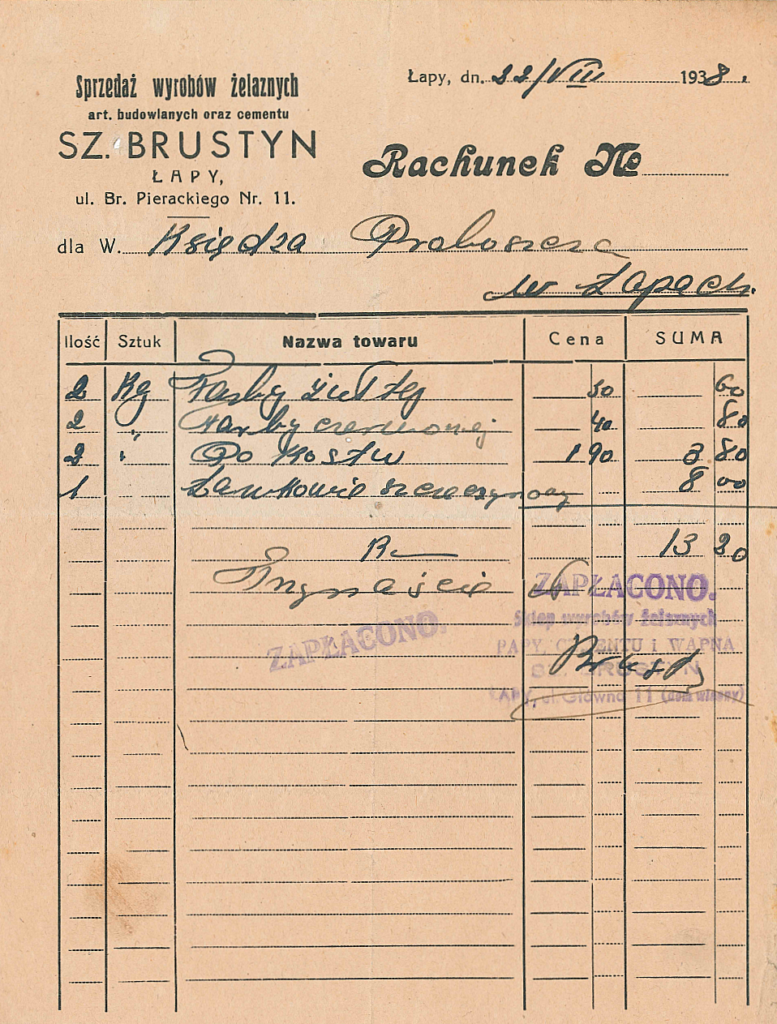 Sprzedaż wyrobów żelaznych
art. budowlanych oraz cementu
SZ. BRUSTYN
ŁAPY,
ul. Br. Pierackiego Nr. 11.
Łapy, dn. 22/VIII 1938.
Rachunek №
dla W. Księdza Proboszcza
w Łapach.
Ilość Sztuk Nazwa towaru Cena SUMA
2 Kg Farby 30 60
2 " Farby czerwonej 40 80
2 " Pokostu 1 90 3 80
1 8 00
13 20
ZAPŁACONO.
Sklep wyrobów żelaznych
PAPY, CEMENTU i WAPNA
SZ. BRUSTYN
ŁAPY, ul. Główna 11 (dom własny)
ZAPŁACONO.